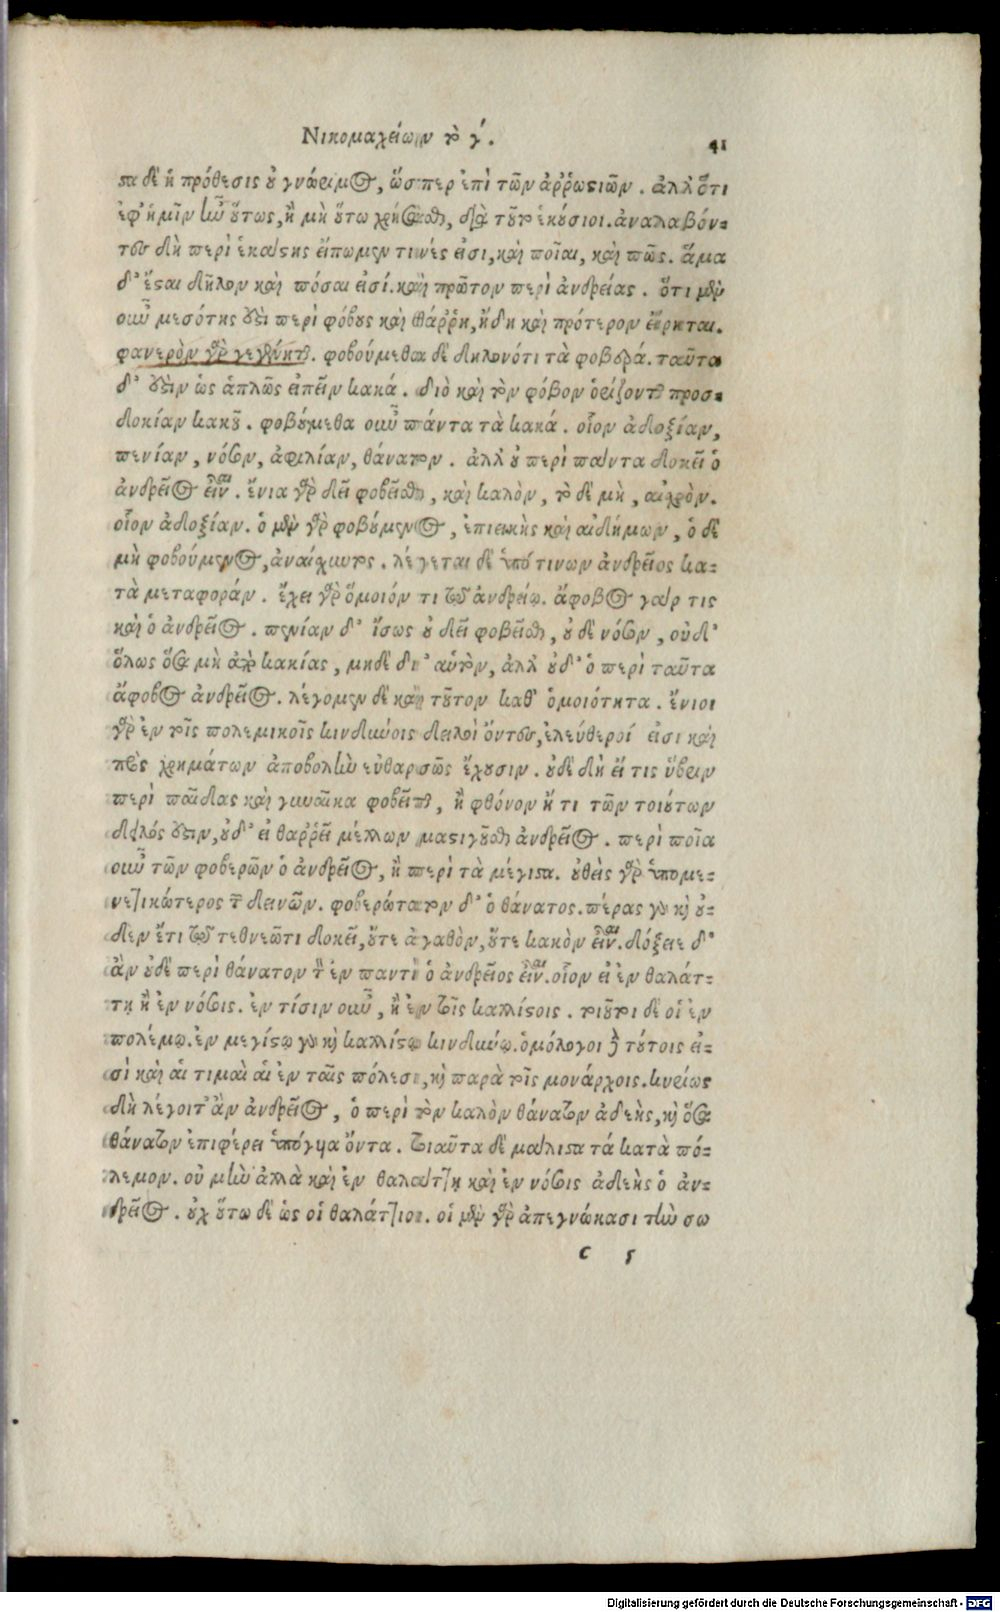 Νικομαχείων τὸ γ΄.
41
ϛα δὲ ἡ πρόθεσις οὐ γνώριμος, ὥσπερ ἐπὶ τῶν ἀῤῥωϛιῶν. ἀλλ' ὅτι
ἐφ' ἡμῖν ἦν οὕτως, ἢ μὴ οὕτω χρήσασθαι, διὰ τοῦτο ἑκούσιοι. ἀναλαβόν-
τες δὴ περὶ ἑκάϛης εἴπωμεν τινές εἰσι, καὶ ποῖαι, καὶ πῶς. ἅμα
δ' ἔϛαι δῆλον καὶ πόσαι εἰσί. καὶ πρῶτον περὶ ἀνδρείας. ὅτι μὲν
οὖν μεσότης ἐϛὶ περὶ φόβους καὶ θάῤῥη, ἤδη καὶ πρότερον εἴρηται.
φανερὸν γὰρ γεγένηται. φοβούμεθα δὲ δηλονότι τὰ φοβερά. ταῦτα
δ' ἐϛὶν ὡς ἁπλῶς εἰπεῖν κακά. διὸ καὶ τὸν φόβον ὁρίζονται προσ-
δοκίαν κακοῦ. φοβούμεθα οὖν πάντα τὰ κακά. οἷον ἀδοξίαν,
πενίαν, νόσον, ἀφιλίαν, θάνατον. ἀλλ' οὐ περὶ πάντα δοκεῖ ὁ
ἀνδρεῖος εἶναι. ἔνια γὰρ δεῖ φοβεῖσθαι, καὶ καλὸν, τὸ δὲ μὴ, αἰσχρὸν.
οἷον ἀδοξίαν. ὁ μὲν γὰρ φοβούμενος, ἐπιεικὴς καὶ αἰδήμων, ὁ δὲ
μὴ φοβούμενος, ἀναίσχυντος. λέγεται δὲ ὑπό τινων ἀνδρεῖος κα-
τὰ μεταφοράν. ἔχει γὰρ ὅμοιόν τι τῷ ἀνδρείῳ. ἄφοβος γάρ τις
καὶ ὁ ἀνδρεῖος. πενίαν δ' ἴσως οὐ δεῖ φοβεῖσθαι, οὐδὲ νόσον, οὐδ'
ὅλως ὅσα μὴ ἀπὸ κακίας, μηδὲ δι' αὑτὸν, ἀλλ' οὐδ' ὁ περὶ ταῦτα
ἄφοβος ἀνδρεῖος. λέγομεν δὲ καὶ τοῦτον καθ' ὁμοιότητα. ἔνιοι
γὰρ ἐν τοῖς πολεμικοῖς κινδύνοις δειλοὶ ὄντες, ἐλεύθεροί εἰσι καὶ
πρὸς χρημάτων ἀποβολὴν εὐθαρσῶς ἔχουσιν. οὐδὲ δὴ εἴ τις ὕβριν
περὶ παῖδας καὶ γυναῖκα φοβεῖται, ἢ φθόνον ἤ τι τῶν τοιούτων
δειλός ἐϛιν, οὐδ' εἰ θαῤῥεῖ μέλλων μαϛιγοῦσθαι ἀνδρεῖος. περὶ ποῖα
οὖν τῶν φοβερῶν ὁ ἀνδρεῖος, ἢ περὶ τὰ μέγιϛα. οὐθεὶς γὰρ ὑπομε-
νετικώτερος τῶν δεινῶν. φοβερώτατον δ' ὁ θάνατος. πέρας γὰρ καὶ οὐ-
δὲν ἔτι τῷ τεθνεῶτι δοκεῖ, οὔτε ἀγαθὸν, οὔτε κακὸν εἶναι. δόξειε δ'
ἂν οὐδὲ περὶ θάνατον τὸν ἐν παντὶ ὁ ἀνδρεῖος εἶναι. οἷον εἰ ἐν θαλάτ-
τῃ ἢ ἐν νόσοις. ἐν τίσιν οὖν, ἢ ἐν τοῖς καλλίϛοις. τοιοῦτοι δὲ οἱ ἐν
πολέμῳ. ἐν μεγίϛῳ γὰρ καὶ καλλίϛῳ κινδύνῳ. ὁμόλογοι δὲ τούτοις εἰ-
σὶ καὶ αἱ τιμαὶ αἱ ἐν ταῖς πόλεσι, καὶ παρὰ τοῖς μονάρχοις. κυρίως
δὴ λέγοιτ' ἂν ἀνδρεῖος, ὁ περὶ τὸν καλὸν θάνατον ἀδεὴς, καὶ ὅσα
θάνατον ἐπιφέρει ὑπόγυα ὄντα. τοιαῦτα δὲ μάλιϛα τά κατὰ πό-
λεμον. οὐ μὴν ἀλλὰ καὶ ἐν θαλάττῃ καὶ ἐν νόσοις ἀδεὴς ὁ ἀν-
δρεῖος. οὐχ οὕτω δὲ ὡς οἱ θαλάττιοι. οἱ μὲν γὰρ ἀπεγνώκασι τὴν σω
c 5
Digitalisierung gefördert durch die Deutsche Forschungsgemeinschaft - DFG